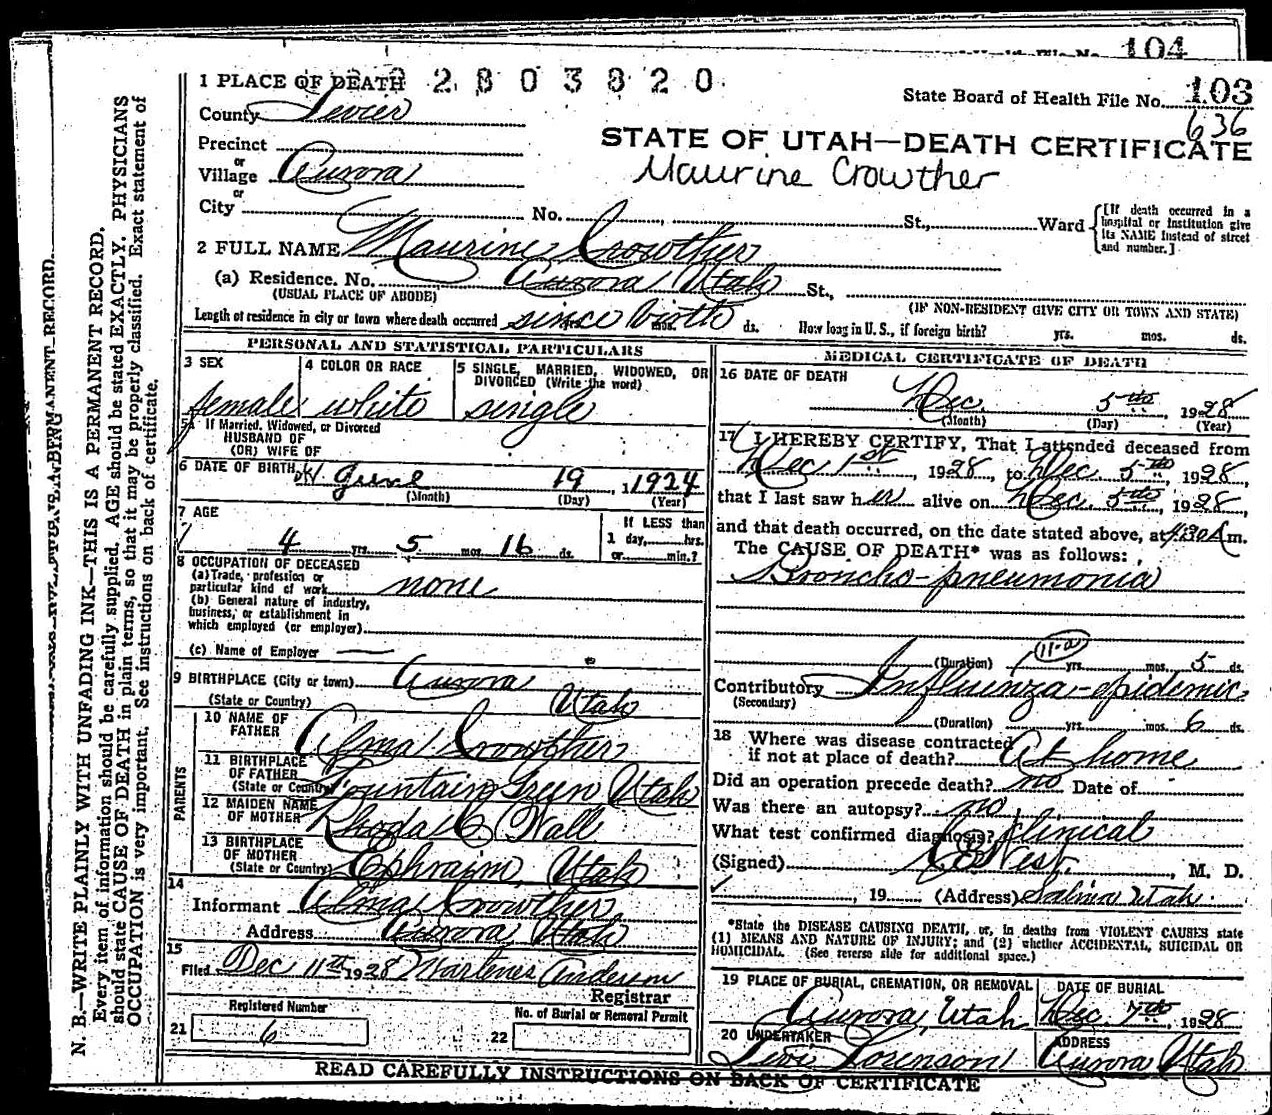 104
1 PLACE OF DEATH 2803820
State Board of Health File No. 103
636
County Sevier
STATE OF UTAH—DEATH CERTIFICATE
Precinct
or
Village Aurora
Maurine Crowther
or
City No. St., Ward
[If death occurred in a hospital or institution give its NAME instead of street and number.]
2 FULL NAME Maurine Crowther
(a) Residence. No. Aurora Utah St.,
(USUAL PLACE OF ABODE) (IF NON-RESIDENT GIVE CITY OR TOWN AND STATE)
Length of residence in city or town where death occurred since birth yrs. mos. ds. How long in U. S., if foreign birth? yrs. mos. ds.
PERSONAL AND STATISTICAL PARTICULARS
3 SEX 4 COLOR OR RACE 5 SINGLE, MARRIED, WIDOWED, OR DIVORCED (Write the word)
female white single
5a If Married, Widowed, or Divorced
HUSBAND OF
(OR) WIFE OF
6 DATE OF BIRTH June 19 1924
(Month) (Day) (Year)
7 AGE
If LESS than
1 day, hrs.
or min.?
4 yrs. 5 mos. 16 ds.
8 OCCUPATION OF DECEASED
(a) Trade, profession or
particular kind of work none
(b) General nature of industry,
business, or establishment in
which employed (or employer)
(c) Name of Employer —
9 BIRTHPLACE (City or town) Aurora
(State or Country) Utah
PARENTS
10 NAME OF
FATHER Alma Crowther
11 BIRTHPLACE
OF FATHER
(State or Country) Fountain Green Utah
12 MAIDEN NAME
OF MOTHER Rhoda C Wall
13 BIRTHPLACE
OF MOTHER
(State or Country) Ephraim, Utah
14
Informant Alma Crowther
Address Aurora, Utah
15
Filed Dec 11th 1928 Anderson
Registrar
Registered Number
21 6
No. of Burial or Removal Permit
22
MEDICAL CERTIFICATE OF DEATH
16 DATE OF DEATH
Dec. 5th, 1928
(Month) (Day) (Year)
17 I HEREBY CERTIFY, That I attended deceased from
Dec 1st, 1928, to Dec. 5th, 1928,
that I last saw her alive on Dec. 5th, 1928,
and that death occurred, on the date stated above, at 4:30 A m.
The CAUSE OF DEATH* was as follows:
Broncho-pneumonia
11-a
(Duration) yrs. mos. 5 ds.
Contributory Influenza-epidemic
(Secondary)
(Duration) yrs. mos. 6 ds.
18 Where was disease contracted
if not at place of death? At home
Did an operation precede death? no Date of
Was there an autopsy? no
What test confirmed diagnosis? Clinical
(Signed) West, M. D.
, 19 (Address) Salina Utah.
*State the DISEASE CAUSING DEATH, or, in deaths from VIOLENT CAUSES state
(1) MEANS AND NATURE OF INJURY; and (2) whether ACCIDENTAL, SUICIDAL OR
HOMICIDAL. (See reverse side for additional space.)
19 PLACE OF BURIAL, CREMATION, OR REMOVAL DATE OF BURIAL
Aurora, Utah Dec. 7th, 1928
20 UNDERTAKER ADDRESS
Levi Sorenson Aurora Utah
READ CAREFULLY INSTRUCTIONS ON BACK OF CERTIFICATE
N. B.—WRITE PLAINLY WITH UNFADING INK—THIS IS A PERMANENT RECORD.
Every item of information should be carefully supplied. AGE should be stated EXACTLY. PHYSICIANS
should state CAUSE OF DEATH in plain terms, so that it may be properly classified. Exact statement of
OCCUPATION is very important. See instructions on back of certificate.